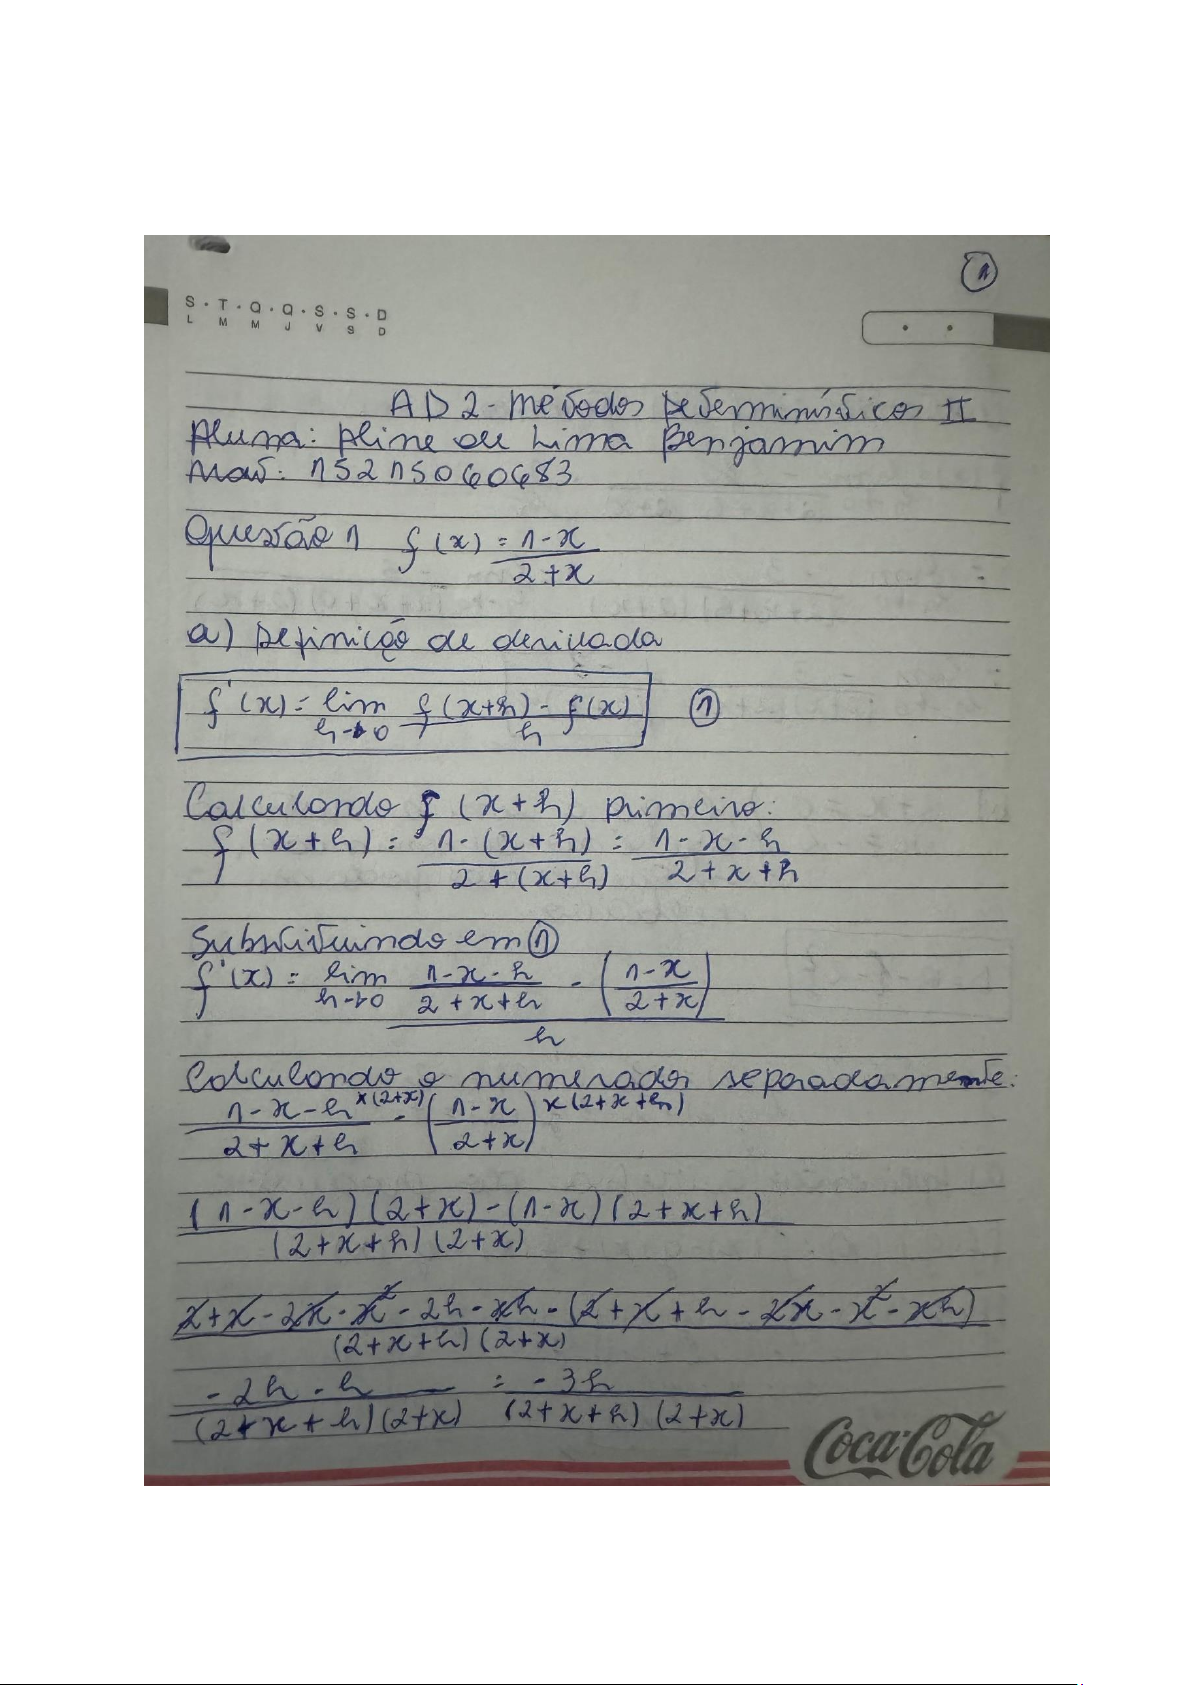 1
S · T · Q · Q · S · S · D
L M M J V S D
AD2 - Métodos Determinísticos II
Aluna: Aline de Lima Benjamim
Mat: 15215060683
Questão 1 f(x) = 1-x
2+x
a) Definição de derivada
f'(x) = lim f(x+h) - f(x) 1
h→0 h
Calculando f(x+h) primeiro:
f(x+h) = 1-(x+h) = 1-x-h
2+(x+h) 2+x+h
Substituindo em 1
f'(x) = lim 1-x-h - (1-x)
h→0 2+x+h (2+x)
h
Calculando o numerador separadamente:
1-x-h x(2+x) - (1-x) x(2+x+h)
2+x+h (2+x)
(1-x-h)(2+x)-(1-x)(2+x+h)
(2+x+h)(2+x)
2+x-2x-x²-2h-xh-(2+x+h-2x-x²-xh)
(2+x+h)(2+x)
-2h-h = -3h
(2+x+h)(2+x) (2+x+h)(2+x)
Coca-Cola